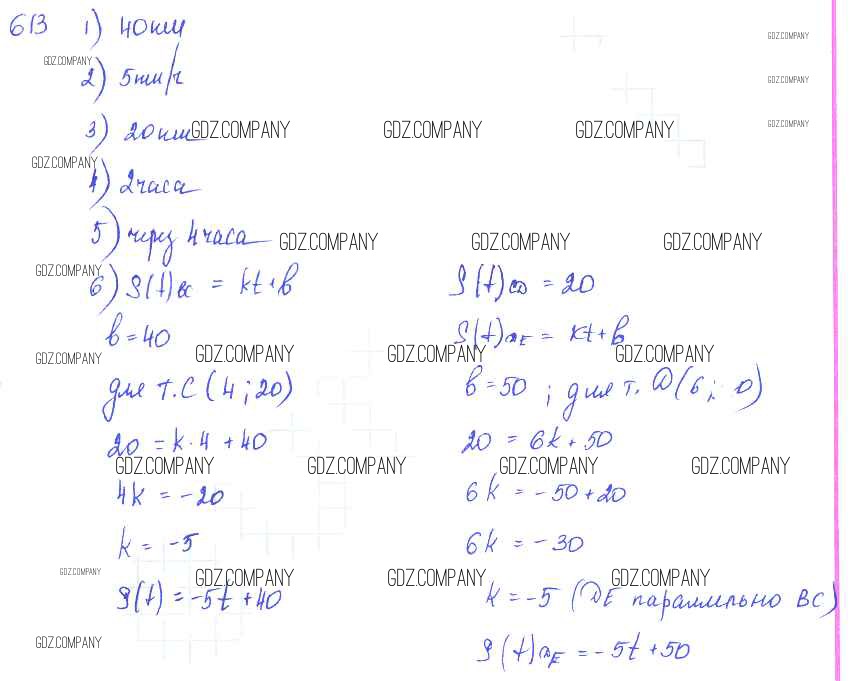 613 1) 40 км
GDZ.COMPANY
GDZ.COMPANY
2) 5 км/ч
GDZ.COMPANY
3) 20 км GDZ.COMPANY GDZ.COMPANY GDZ.COMPANY GDZ.COMPANY
GDZ.COMPANY
4) 2 часа
5) через 4 часа GDZ.COMPANY GDZ.COMPANY GDZ.COMPANY
GDZ.COMPANY
6) S(t)вс = kt+b
b = 40
GDZ.COMPANY GDZ.COMPANY
для т.С (4; 20)
20 = k·4 + 40
GDZ.COMPANY GDZ.COMPANY
4k = -20
k = -5
GDZ.COMPANY GDZ.COMPANY
S(t) = -5t + 40
GDZ.COMPANY
S(t)CD = 20
S(t)DE = kt+b
GDZ.COMPANY GDZ.COMPANY
b = 50 ; для т. D (6; 0)
20 = 6k + 50
GDZ.COMPANY GDZ.COMPANY
6k = -50 + 20
6k = -30
GDZ.COMPANY GDZ.COMPANY
k = -5 (DE параллельно ВС)
S(t)DE = -5t + 50